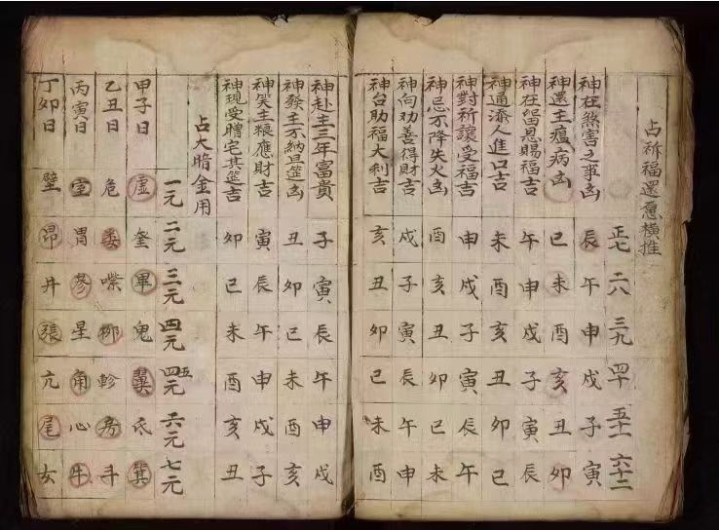 占酧福還愿橫推
正七 二八 三九 四十 五十一 六十二
神在煞害之事凶 辰 午 申 戌 子 寅
神還主瘟病凶 巳 未 酉 亥 丑 卯
神在留恩賜福吉 午 申 戌 子 寅 辰
神通添人進口吉 未 酉 亥 丑 卯 巳
神對祈讓受福吉 申 戌 子 寅 辰 午
神忌不降失火凶 酉 亥 丑 卯 巳 未
神向劝善得財吉 戌 子 寅 辰 午 申
神台助福大利吉 亥 丑 卯 巳 未 酉
神赴主三年富貴 子 寅 辰 午 申 戌
神發主不納且筵凶 丑 卯 巳 未 酉 亥
神笑主粮應財吉 寅 辰 午 申 戌 子
神現受贈宅其筵吉 卯 巳 未 酉 亥 丑
占大暗金用
一元 二元 三元 四元 四五元 六元 七元
甲子日 虛 奎 畢 鬼 翼 氐 箕
乙丑日 危 婁 嘴 柳 軫 房 斗
丙寅日 室 胃 參 星 角 心 牛
丁卯日 壁 昴 井 張 亢 尾 女